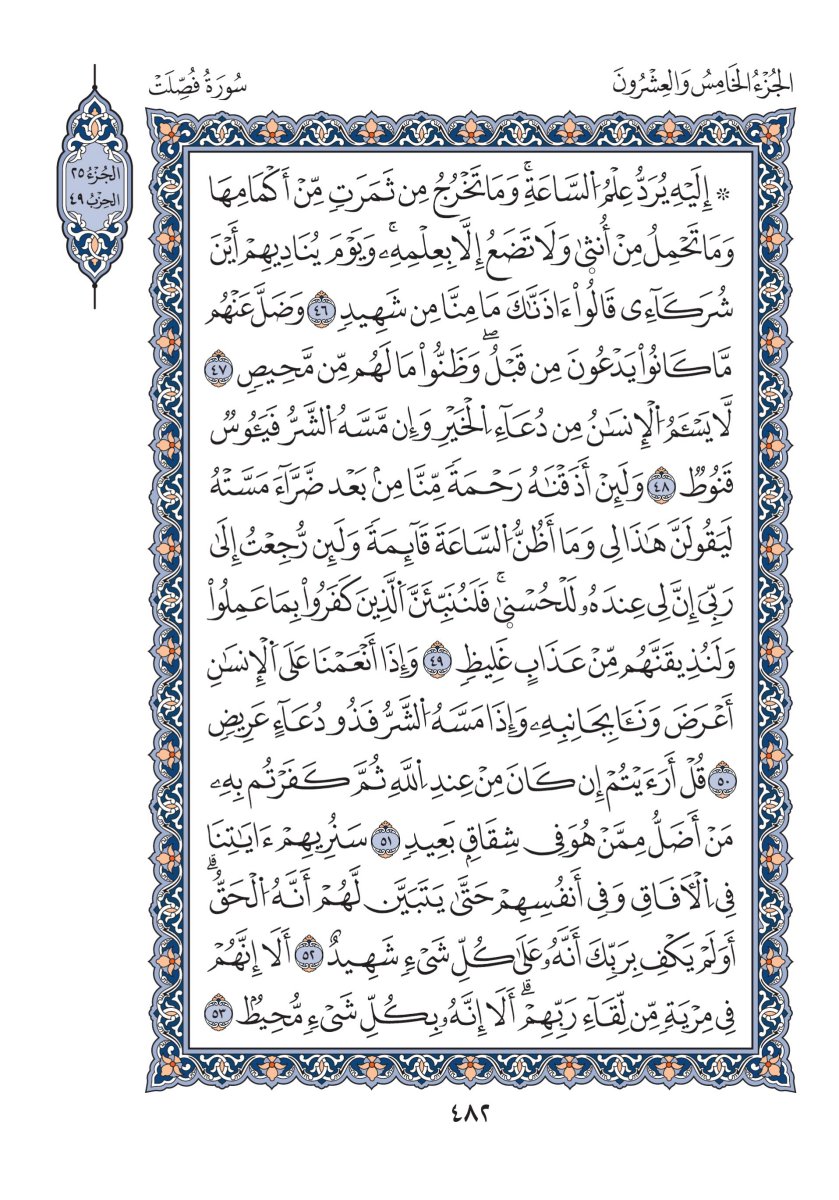 الجُزْءُ الخَامِسُ وَالعِشْرُونَ
سُورَةُ فُصِّلَتْ
الجُزْءُ ٢٥
الحِزْبُ ٤٩
۞ إِلَيْهِ يُرَدُّ عِلْمُ اُ۬لسَّاعَةِۚ وَمَا تَخْرُجُ مِن ثَمَرَتٖ مِّنْ أَكْمَامِهَا
وَمَا تَحْمِلُ مِنْ أُنث۪يٰ وَلَا تَضَعُ إِلَّا بِعِلْمِهِۦۚ وَيَوْمَ يُنَادِيهِمْ أَيْنَ
شُرَكَآءِى قَالُوٓاْ ءَاذَنَّٰكَ مَا مِنَّا مِن شَهِيدٖ ٤٦ وَضَلَّ عَنْهُم
مَّا كَانُواْ يَدْعُونَ مِن قَبْلُۖ وَظَنُّواْ مَا لَهُم مِّن مَّحِيصٖ ٤٧
لَّا يَسْـَٔمُ اُ۬لْإِنسَٰنُ مِن دُعَآءِ اِ۬لْخَيْرِ وَإِن مَّسَّهُ اُ۬لشَّرُّ فَيَـُٔوسٞ
قَنُوطٞ ٤٨ وَلَئِنْ أَذَقْنَٰهُ رَحْمَةٗ مِّنَّا مِنۢ بَعْد ضَّرَّآءَ مَسَّتْهُ
لَيَقُولَنَّ هَٰذَا لِى وَمَا أَظُنُّ اُ۬لسَّاعَةَ قَآئِمَةٗ وَلَئِن رُّجِعْتُ إِلَىٰ
رَبِّىَ إِنَّ لِى عِندَهُۥ لَلْحُسْن۪يٰۚ فَلَنُنَبِّئَنَّ اَ۬لَّذِينَ كَفَرُواْ بِمَا عَمِلُواْ
وَلَنُذِيقَنَّهُم مِّنْ عَذَابٍ غَلِيظٖ ٤٩ وَإِذَا أَنْعَمْنَا عَلَى اَ۬لْإِنسَٰنِ
أَعْرَضَ وَنَـَٔا بِجَانِبِهِۦ وَإِذَا مَسَّهُ اُ۬لشَّرُّ فَذُو دُعَآءٍ عَرِيضٖ
٥٠ قُلْ أَرَءَيْتُمْ إِن كَانَ مِنْ عِندِ اِ۬للَّهِ ثُمَّ كَفَرْتُم بِهِۦ
مَنْ أَضَلُّ مِمَّنْ هُوَ فِى شِقَاقِۭ بَعِيدٖ ٥١ سَنُرِيهِمْ ءَايَٰتِنَا
فِى اِ۬لْأٓفَاقِ وَفِى أَنفُسِهِمْ حَتَّىٰ يَتَبَيَّن لَّهُمْ أَنَّهُ اُ۬لْحَقُّۗ
أَوَلَمْ يَكْفِ بِرَبِّكَ أَنَّهُۥ عَلَىٰ كُلِّ شَىْءٖ شَهِيدٌ ٥٢ أَلَا إِنَّهُمْ
فِى مِرْيَةٖ مِّن لِّقَآءِ رَبِّهِمْۗ أَلَا إِنَّهُۥ بِكُلِّ شَىْءٖ مُّحِيطٞ ٥٣
٤٨٢